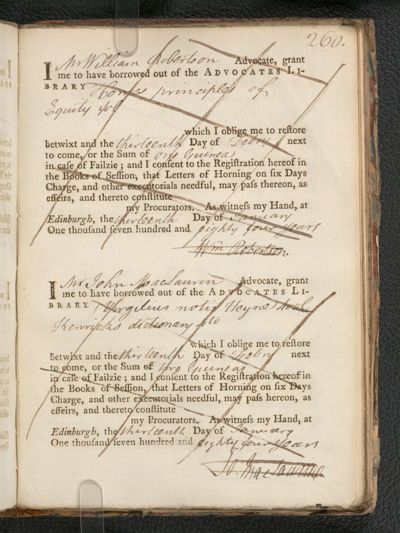 260.
I Mr William Robertson Advocate, grant
me to have borrowed out of the ADVOCATES LI-
BRARY Homes principles of
Equity
which I oblige me to reſtore
betwixt and the thirteenth Day of Febry next
to come, or the Sum of two Guineas
in caſe of Failzie; and I conſent to the Regiſtration hereof in
the Books of Seſſion, that Letters of Horning on ſix Days
Charge, and other executorials needful, may paſs thereon, as
effeirs, and thereto conſtitute
my Procurators. As witneſs my Hand, at
Edinburgh, the thirteenth Day of January
One thouſand ſeven hundred and eighty four years
Wm Robertson
I Mr John MacLaurin Advocate, grant
me to have borrowed out of the ADVOCATES LI-
BRARY Virgilius notis Heyne
Kenricks dictionary 4to
which I oblige me to reſtore
betwixt and the thirteenth Day of Febry next
to come, or the Sum of two Guineas
in caſe of Failzie; and I conſent to the Regiſtration hereof in
the Books of Seſſion, that Letters of Horning on ſix Days
Charge, and other executorials needful, may paſs hereon, as
effeirs, and thereto conſtitute
my Procurators. As witneſs my Hand, at
Edinburgh, the thirteenth Day of January
One thouſand ſeven hundred and eighty four years
Jo. MacLaurin